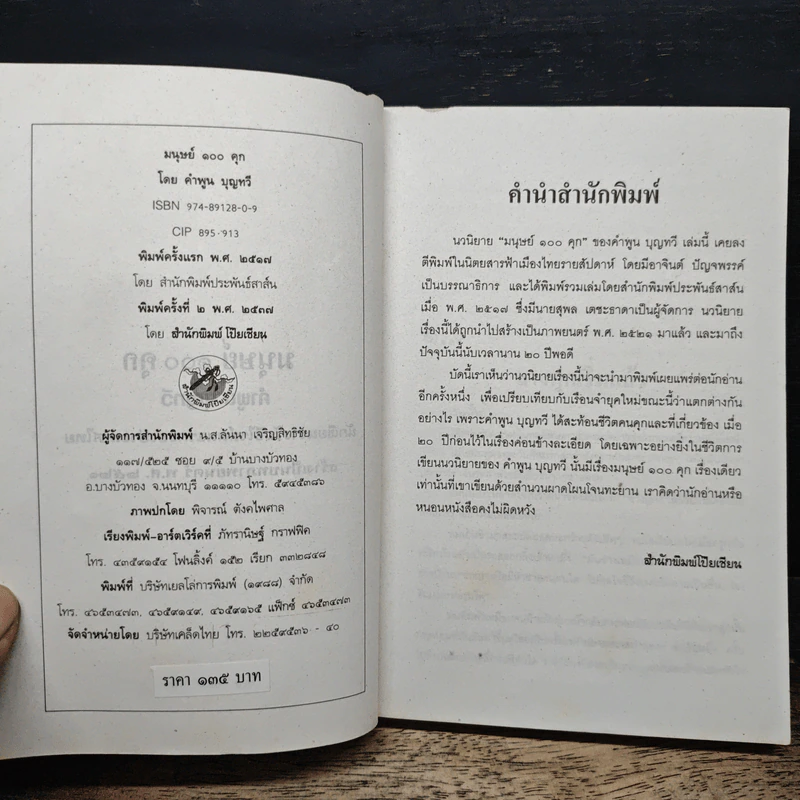 มนุษย์ ๑๐๐ คุก
โดย คำพูน บุญทวี
ISBN 974-89128-0-9
CIP 895.913
พิมพ์ครั้งแรก พ.ศ. ๒๕๑๗
โดย สำนักพิมพ์ประพันธ์สาส์น
พิมพ์ครั้งที่ ๒ พ.ศ. ๒๕๓๗
โดย สำนักพิมพ์ โป๊ยเซียน
สำนักพิมพ์โป๊ยเซียน
ผู้จัดการสำนักพิมพ์ น.ส.ลันนา เจริญสิทธิชัย
๑๑๗/๕๒๕ ซอย ๙/๕ บ้านบางบัวทอง
อ.บางบัวทอง จ.นนทบุรี ๑๑๑๑๐ โทร. ๕๙๔๕๓๘๖
ภาพปกโดย พิจารณ์ ตังคไพศาล
เรียงพิมพ์-อาร์ตเวิร์คที่ ภัทรานิษฐ์ กราฟฟิค
โทร. ๔๓๕๙๑๕๔ โฟนลิ้งค์ ๑๕๒ เรียก ๓๓๒๘๔๘
พิมพ์ที่ บริษัทเยลโล่การพิมพ์ (๑๙๘๘) จำกัด
โทร. ๔๖๕๓๔๗๓, ๔๖๕๙๑๔๙, ๔๖๕๙๑๖๕ แฟ็กซ์ ๔๖๕๓๔๗๓
จัดจำหน่ายโดย บริษัทเคล็ดไทย โทร. ๒๒๕๙๕๓๖ - ๔๐
ราคา ๑๓๕ บาท
คำนำสำนักพิมพ์
นวนิยาย “มนุษย์ ๑๐๐ คุก” ของคำพูน บุญทวี เล่มนี้ เคยลง
ตีพิมพ์ในนิตยสารฟ้าเมืองไทยรายสัปดาห์ โดยมีอาจินต์ ปัญจพรรค์
เป็นบรรณาธิการ และได้พิมพ์รวมเล่มโดยสำนักพิมพ์ประพันธ์สาส์น
เมื่อ พ.ศ. ๒๕๑๗ ซึ่งมีนายสุพล เตชะธาดาเป็นผู้จัดการ นวนิยาย
เรื่องนี้ได้ถูกนำไปสร้างเป็นภาพยนตร์ พ.ศ. ๒๕๒๑ มาแล้ว และมาถึง
ปัจจุบันนี้นับเวลานาน ๒๐ ปีพอดี
บัดนี้เราเห็นว่านวนิยายเรื่องนี้น่าจะนำมาพิมพ์เผยแพร่ต่อนักอ่าน
อีกครั้งหนึ่ง เพื่อเปรียบเทียบกับเรือนจำยุคใหม่ขณะนี้ว่าแตกต่างกัน
อย่างไร เพราะคำพูน บุญทวี ได้สะท้อนชีวิตคนคุกและที่เกี่ยวข้อง เมื่อ
๒๐ ปีก่อนไว้ในเรื่องค่อนข้างละเอียด โดยเฉพาะอย่างยิ่งในชีวิตการ
เขียนนวนิยายของ คำพูน บุญทวี นั้นมีเรื่องมนุษย์ ๑๐๐ คุก เรื่องเดียว
เท่านั้นที่เขาเขียนด้วยสำนวนผาดโผนโจนทะยาน เราคิดว่านักอ่านหรือ
หนอนหนังสือคงไม่ผิดหวัง
สำนักพิมพ์โป๊ยเซียน